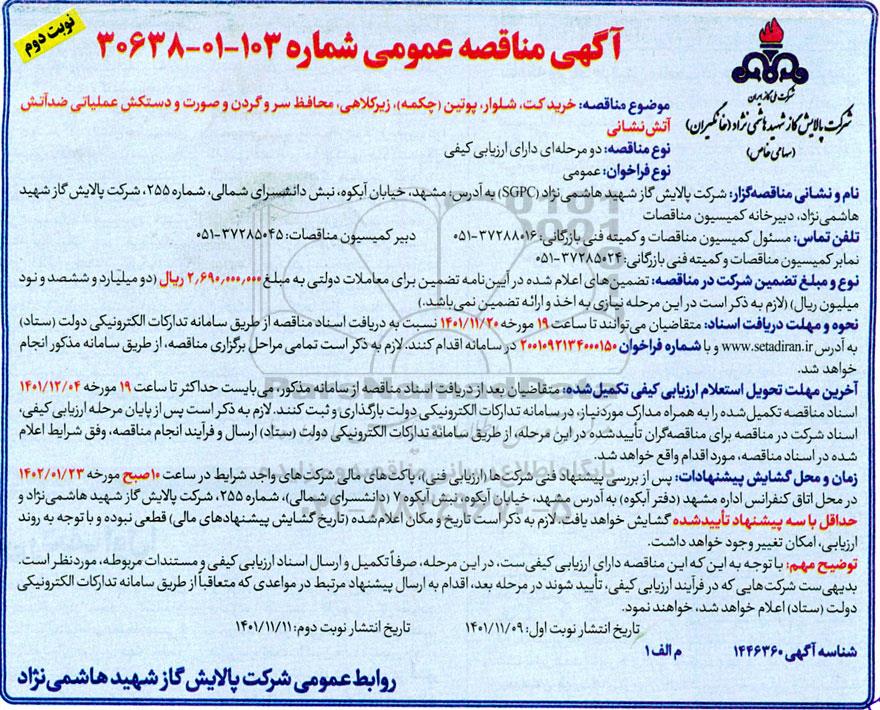 نوبت دوم
آگهی مناقصه عمومی شماره ۱۰۳-۰۱-۳۰۶۳۸
شرکت ملی گاز ایران
شرکت پالایش گاز شهید هاشمی نژاد (خانگیران)
(سهامی خاص)
موضوع مناقصه: خرید کت، شلوار، پوتین (چکمه)، زیرکلاهی، محافظ سر و گردن و صورت و دستکش عملیاتی ضدآتش
آتش‌نشانی
نوع مناقصه: دو مرحله‌ای دارای ارزیابی کیفی
نوع فراخوان: عمومی
نام و نشانی مناقصه‌گزار: شرکت پالایش گاز شهید هاشمی نژاد (SGPC) به آدرس: مشهد، خیابان آبکوه، نبش دانشسرای شمالی، شماره ۲۵۵، شرکت پالایش گاز شهید
هاشمی‌نژاد، دبیرخانه کمیسیون مناقصات
تلفن تماس: مسئول کمیسیون مناقصات و کمیته فنی بازرگانی: ۳۷۲۸۸۰۱۶-۰۵۱ دبیر کمیسیون مناقصات: ۳۷۲۸۵۰۴۵-۰۵۱
نمابر کمیسیون مناقصات و کمیته فنی بازرگانی: ۳۷۲۸۵۰۲۴-۰۵۱
نوع و مبلغ تضمین شرکت در مناقصه: تضمین‌های اعلام شده در آیین‌نامه تضمین برای معاملات دولتی به مبلغ ۲٫۶۹۰٫۰۰۰٫۰۰۰ ریال (دو میلیارد و ششصد و نود
میلیون ریال) (لازم به ذکر است در این مرحله نیازی به اخذ و ارائه تضمین نمی‌باشد.)
نحوه و مهلت دریافت اسناد: متقاضیان می‌توانند تا ساعت ۱۹ مورخه ۱۴۰۱/۱۱/۲۰ نسبت به دریافت اسناد مناقصه از طریق سامانه تدارکات الکترونیکی دولت (ستاد)
به آدرس www.setadiran.ir و با شماره فراخوان ۲۰۰۱۰۹۲۱۳۴۰۰۰۱۵۰ در سامانه اقدام کنند. لازم به ذکر است تمامی مراحل برگزاری مناقصه، از طریق سامانه مذکور انجام
خواهد شد.
آخرین مهلت تحویل استعلام ارزیابی کیفی تکمیل شده: متقاضیان بعد از دریافت اسناد مناقصه از سامانه مذکور، می‌بایست حداکثر تا ساعت ۱۹ مورخه ۱۴۰۱/۱۲/۰۴
اسناد مناقصه تکمیل شده را به همراه مدارک موردنیاز، در سامانه تدارکات الکترونیکی دولت بارگذاری و ثبت کنند. لازم به ذکر است پس از پایان مرحله ارزیابی کیفی،
اسناد شرکت در مناقصه برای مناقصه‌گران تأییدشده در این مرحله، از طریق سامانه تدارکات الکترونیکی دولت (ستاد) ارسال و فرآیند انجام مناقصه، وفق شرایط اعلام
شده در اسناد مناقصه، مورد اقدام واقع خواهد شد.
زمان و محل گشایش پیشنهادات: پس از بررسی پیشنهاد فنی شرکت‌ها (ارزیابی فنی)، پاکت‌های مالی شرکت‌های واجد شرایط در ساعت ۱۰ صبح مورخه ۱۴۰۲/۰۱/۲۳
در محل اتاق کنفرانس اداره مشهد (دفتر آبکوه) به آدرس مشهد، خیابان آبکوه، نبش آبکوه ۷ (دانشسرای شمالی)، شماره ۲۵۵، شرکت پالایش گاز شهید هاشمی‌نژاد و با
حداقل با سه پیشنهاد تأییدشده گشایش خواهد یافت. لازم به ذکر است تاریخ و مکان اعلام شده (تاریخ گشایش پیشنهادهای مالی) قطعی نبوده و با توجه به روند
ارزیابی، امکان تغییر وجود خواهد داشت.
توضیح مهم: با توجه به این که این مناقصه دارای ارزیابی کیفی‌ست، در این مرحله، صرفاً تکمیل و ارسال اسناد ارزیابی کیفی و مستندات مربوطه، موردنظر است.
بدیهی‌ست شرکت‌هایی که در فرآیند ارزیابی کیفی، تأیید شوند در مرحله بعد، اقدام به ارسال پیشنهاد مرتبط در مواعدی که متعاقباً از طریق سامانه تدارکات الکترونیکی
دولت (ستاد) اعلام خواهد شد، خواهند نمود.
تاریخ انتشار نوبت اول: ۱۴۰۱/۱۱/۰۹ تاریخ انتشار نوبت دوم: ۱۴۰۱/۱۱/۱۱
شناسه آگهی ۱۴۴۶۳۶۰ م الف ۱
روابط عمومی شرکت پالایش گاز شهید هاشمی‌نژاد